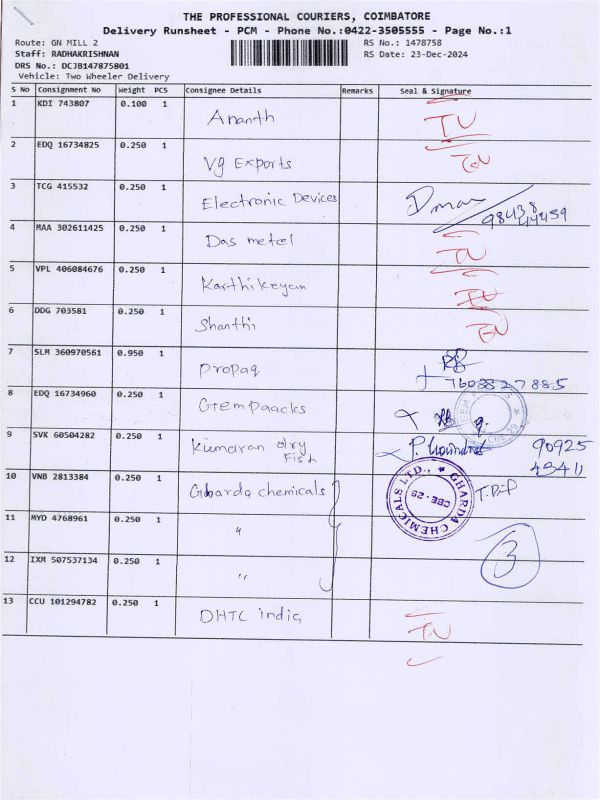 THE PROFESSIONAL COURIERS, COIMBATORE
Delivery Runsheet - PCM - Phone No.:0422-3505555 - Page No.:1
Route: GN MILL 2
RS No.: 1478758
Staff: RADHAKRISHNAN
RS Date: 23-Dec-2024
DRS No.: DCJB147875801
Vehicle: Two Wheeler Delivery
S No Consignment No Weight PCS Consignee Details Remarks Seal & Signature
1 KDI 743807 0.100 1 Ananth
2 EDQ 16734825 0.250 1 Vg Exports
3 TCG 415532 0.250 1 Electronic Devices 98438 44459
4 MAA 302611425 0.250 1 Das metel
5 VPL 406084676 0.250 1 Karthikeyan
6 DDG 703581 0.250 1 Shanthi
7 SLM 360970561 0.950 1 Propaq 7603827885
8 EDQ 16734960 0.250 1 Gtempaacks
9 SVK 60504282 0.250 1 Kumaran dry Fish 90925 45411
10 VNB 2813384 0.250 1 Gharda chemicals GHARDA CHEMICALS LTD., CBE-29
11 MYD 4768961 0.250 1 " 3
12 IXM 507537134 0.250 1 "
13 CCU 101294782 0.250 1 DHTC india